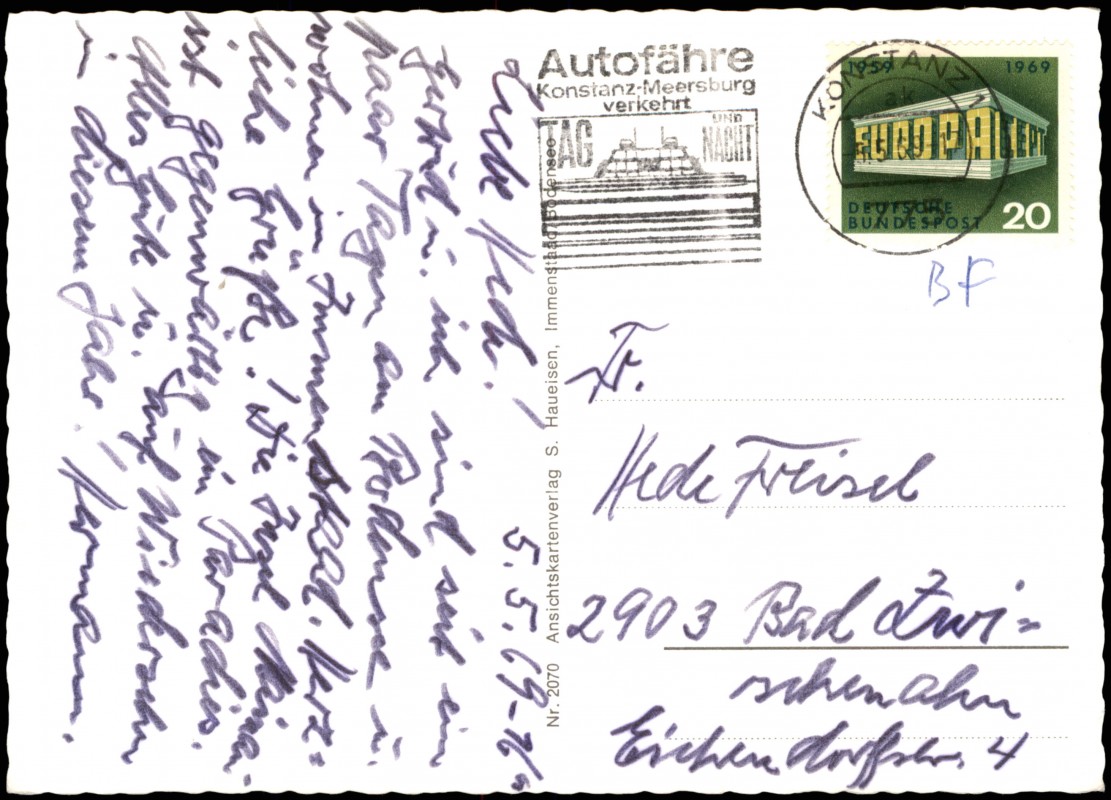 Liebe Hede!
5.5.69 - 16°°
Gertrud u. ich sind seit ein
paar Tagen am Bodensee u.
wohnen in Immenstaad. Herz-
liche Grüße! Die Insel Mainau
ist gegenwärtig ein Paradies.
Alles Gute u. auf Wiedersehn
in diesem Jahr! Hermann.
Autofähre
Konstanz-Meersburg
verkehrt
TAG UND NACHT
Nr. 2070 Ansichtskartenverlag S. Haueisen, Immenstaad/Bodensee
KONSTANZ
ak
1959 1969
EUROPA CEPT
DEUTSCHE
BUNDESPOST 20
BF
Fr.
Hede Freisel
2903 Bad Zwi=
schenahn
Eichendorffstr. 4